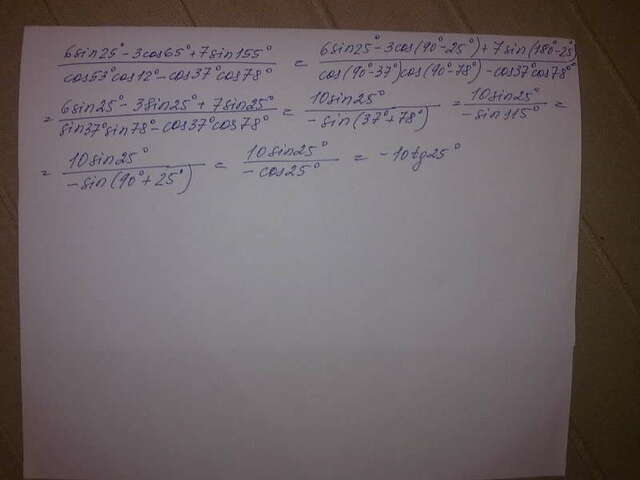 (6sin25° - 3cos65° + 7sin155°)/(cos53°cos12° - cos37°cos78°) = (6sin25° - 3cos(90°-25°) + 7sin(180°-25°))/(cos(90°-37°)cos(90°-78°) - cos37°cos78°)
= (6sin25° - 3sin25° + 7sin25°)/(sin37°sin78° - cos37°cos78°) = 10sin25°/(-sin(37°+78°)) = 10sin25°/(-sin115°) =
= 10sin25°/(-sin(90°+25°)) = 10sin25°/(-cos25°) = -10tg25°